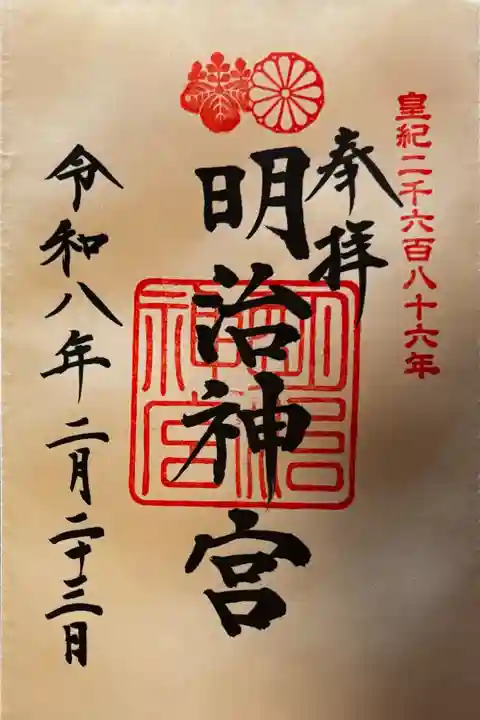 皇紀二千六百八十六年
奉拝
明治神宮
明治神宮
令和八年二月二十三日